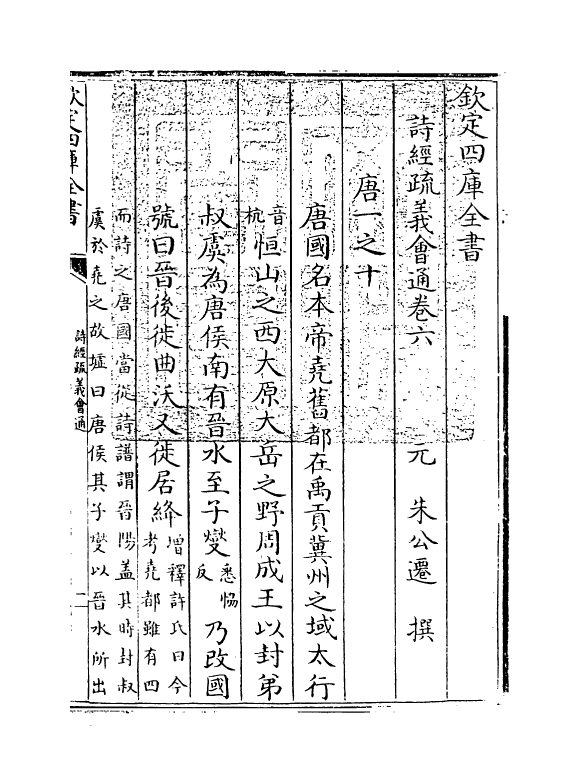 欽定四庫全書
詩經疏義會通卷六
元 朱公遷 撰
唐一之十
唐國名本帝堯舊都在禹貢冀州之域太行
音杭恒山之西大原大岳之野周成王以封弟
叔虞為唐侯南有晉水至子燮悉協反乃改國
號曰晉後徙曲沃又徙居絳增釋許氏曰今
考堯都雖有四
而詩之唐國當從詩譜謂晉陽蓋其時封叔
虞於堯之故墟曰唐侯其子燮以晉水所出
欽定四庫全書
詩經疏義會通